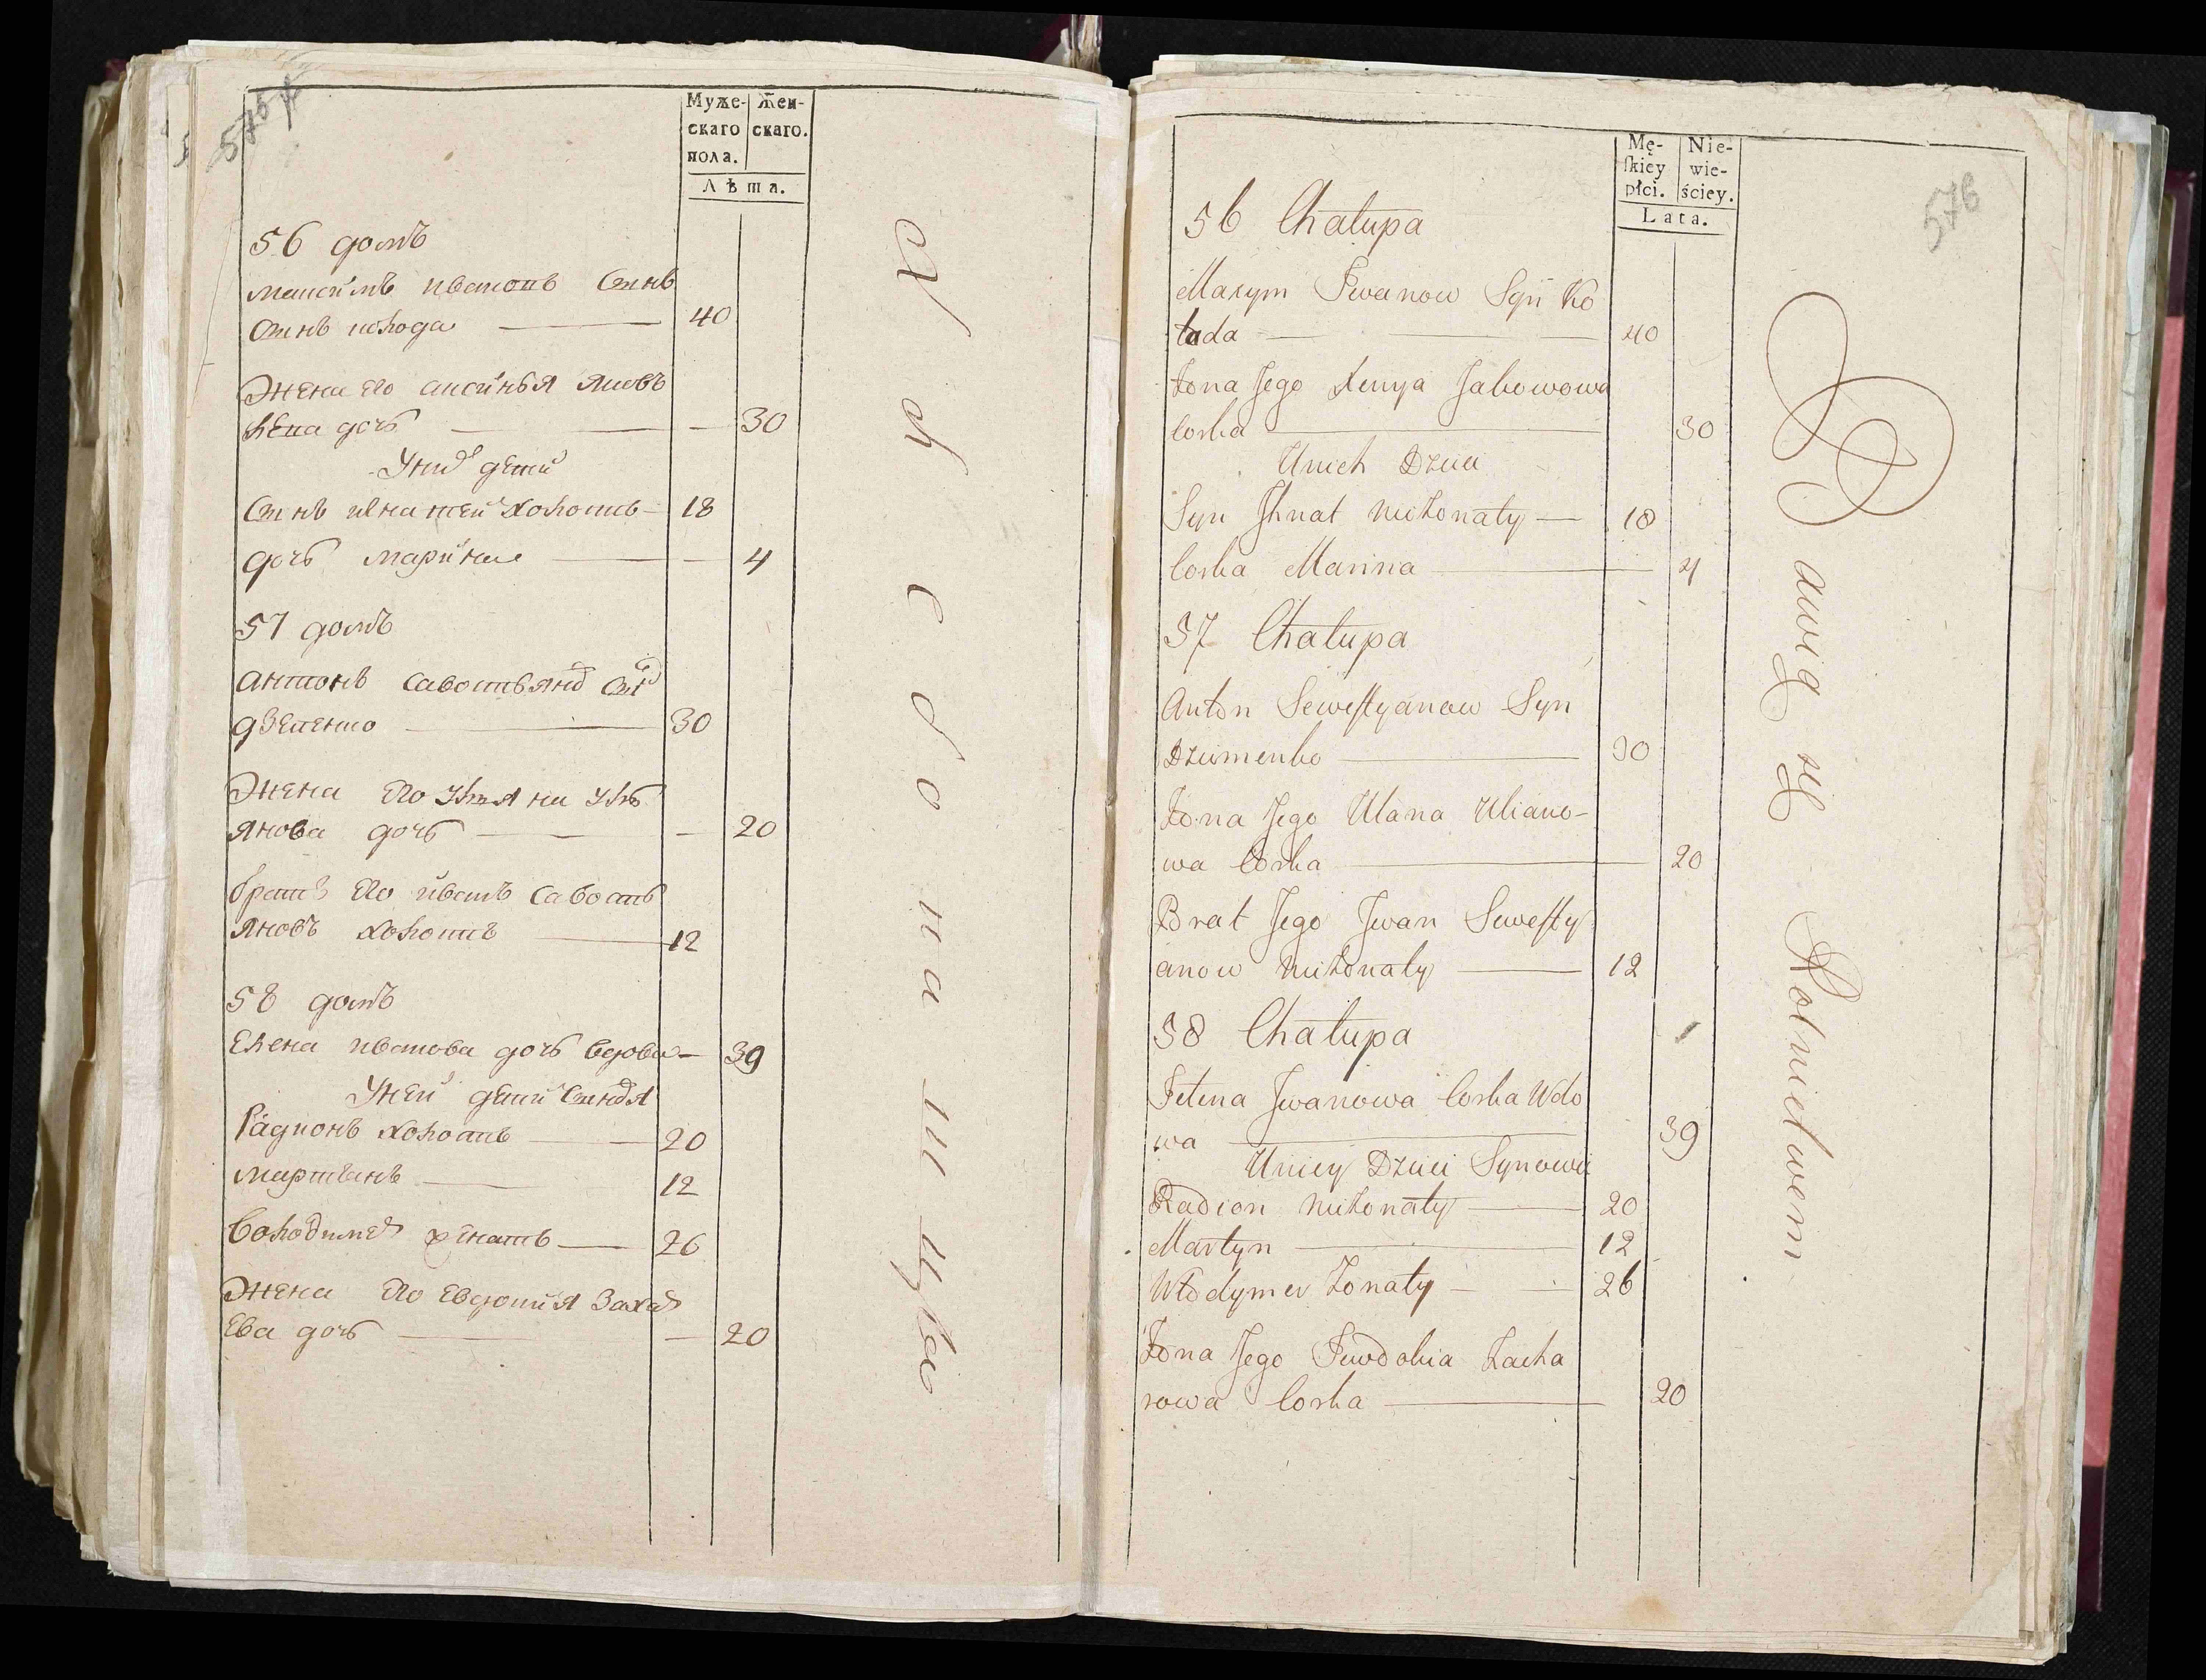 575
Муже-
скаго
пола.
Жен-
скаго.
Лѣта.
56 домъ
максимъ ивановъ Сынъ
колода — 40
Жена его аксинья яков
лева дочь — 30
У них дети
Сынъ игнатей холостъ — 18
дочь марина — 4
57 домъ
антонъ савостьянов Сын
дземенко — 30
Жена его ульяна уль
янова дочь — 20
братъ его иванъ савость
яновъ холостъ — 12
58 домъ
елена иванова дочь вдова — 39
У ней дети Сыновья
Радионъ холостъ — 20
мартынъ — 12
володимеръ женатъ — 26
Жена его евдокия Заха
ева дочь — 20
576
Mę-
ſkiey
płci.
Nie-
wie-
ściey.
Lata.
56 Chałupa
Maxym Iwanow Syn Ko
łada — 40
Żona Jego Xenya Jakowowa
Corka — 30
Unich Dzieci
Syn Jhnat nieżonaty — 18
Corka Marina — 4
57 Chałupa
Anton Seweſtyanow Syn
Dziemenko — 30
Żona Jego Ulana Uliano-
wa Corka — 20
Brat Jego Jwan Seweſty
anow nieżonaty — 12
58 Chałupa
Jelena Jwanowa Corka Wdo
wa — 39
Uniey Dzieci Synowie
Radion nieżonaty — 20
Martyn — 12
Włodymer żonaty — 26
Żona Jego Jewdokia Zacha
rowa Corka — 20
Bawią się Rolnictwem